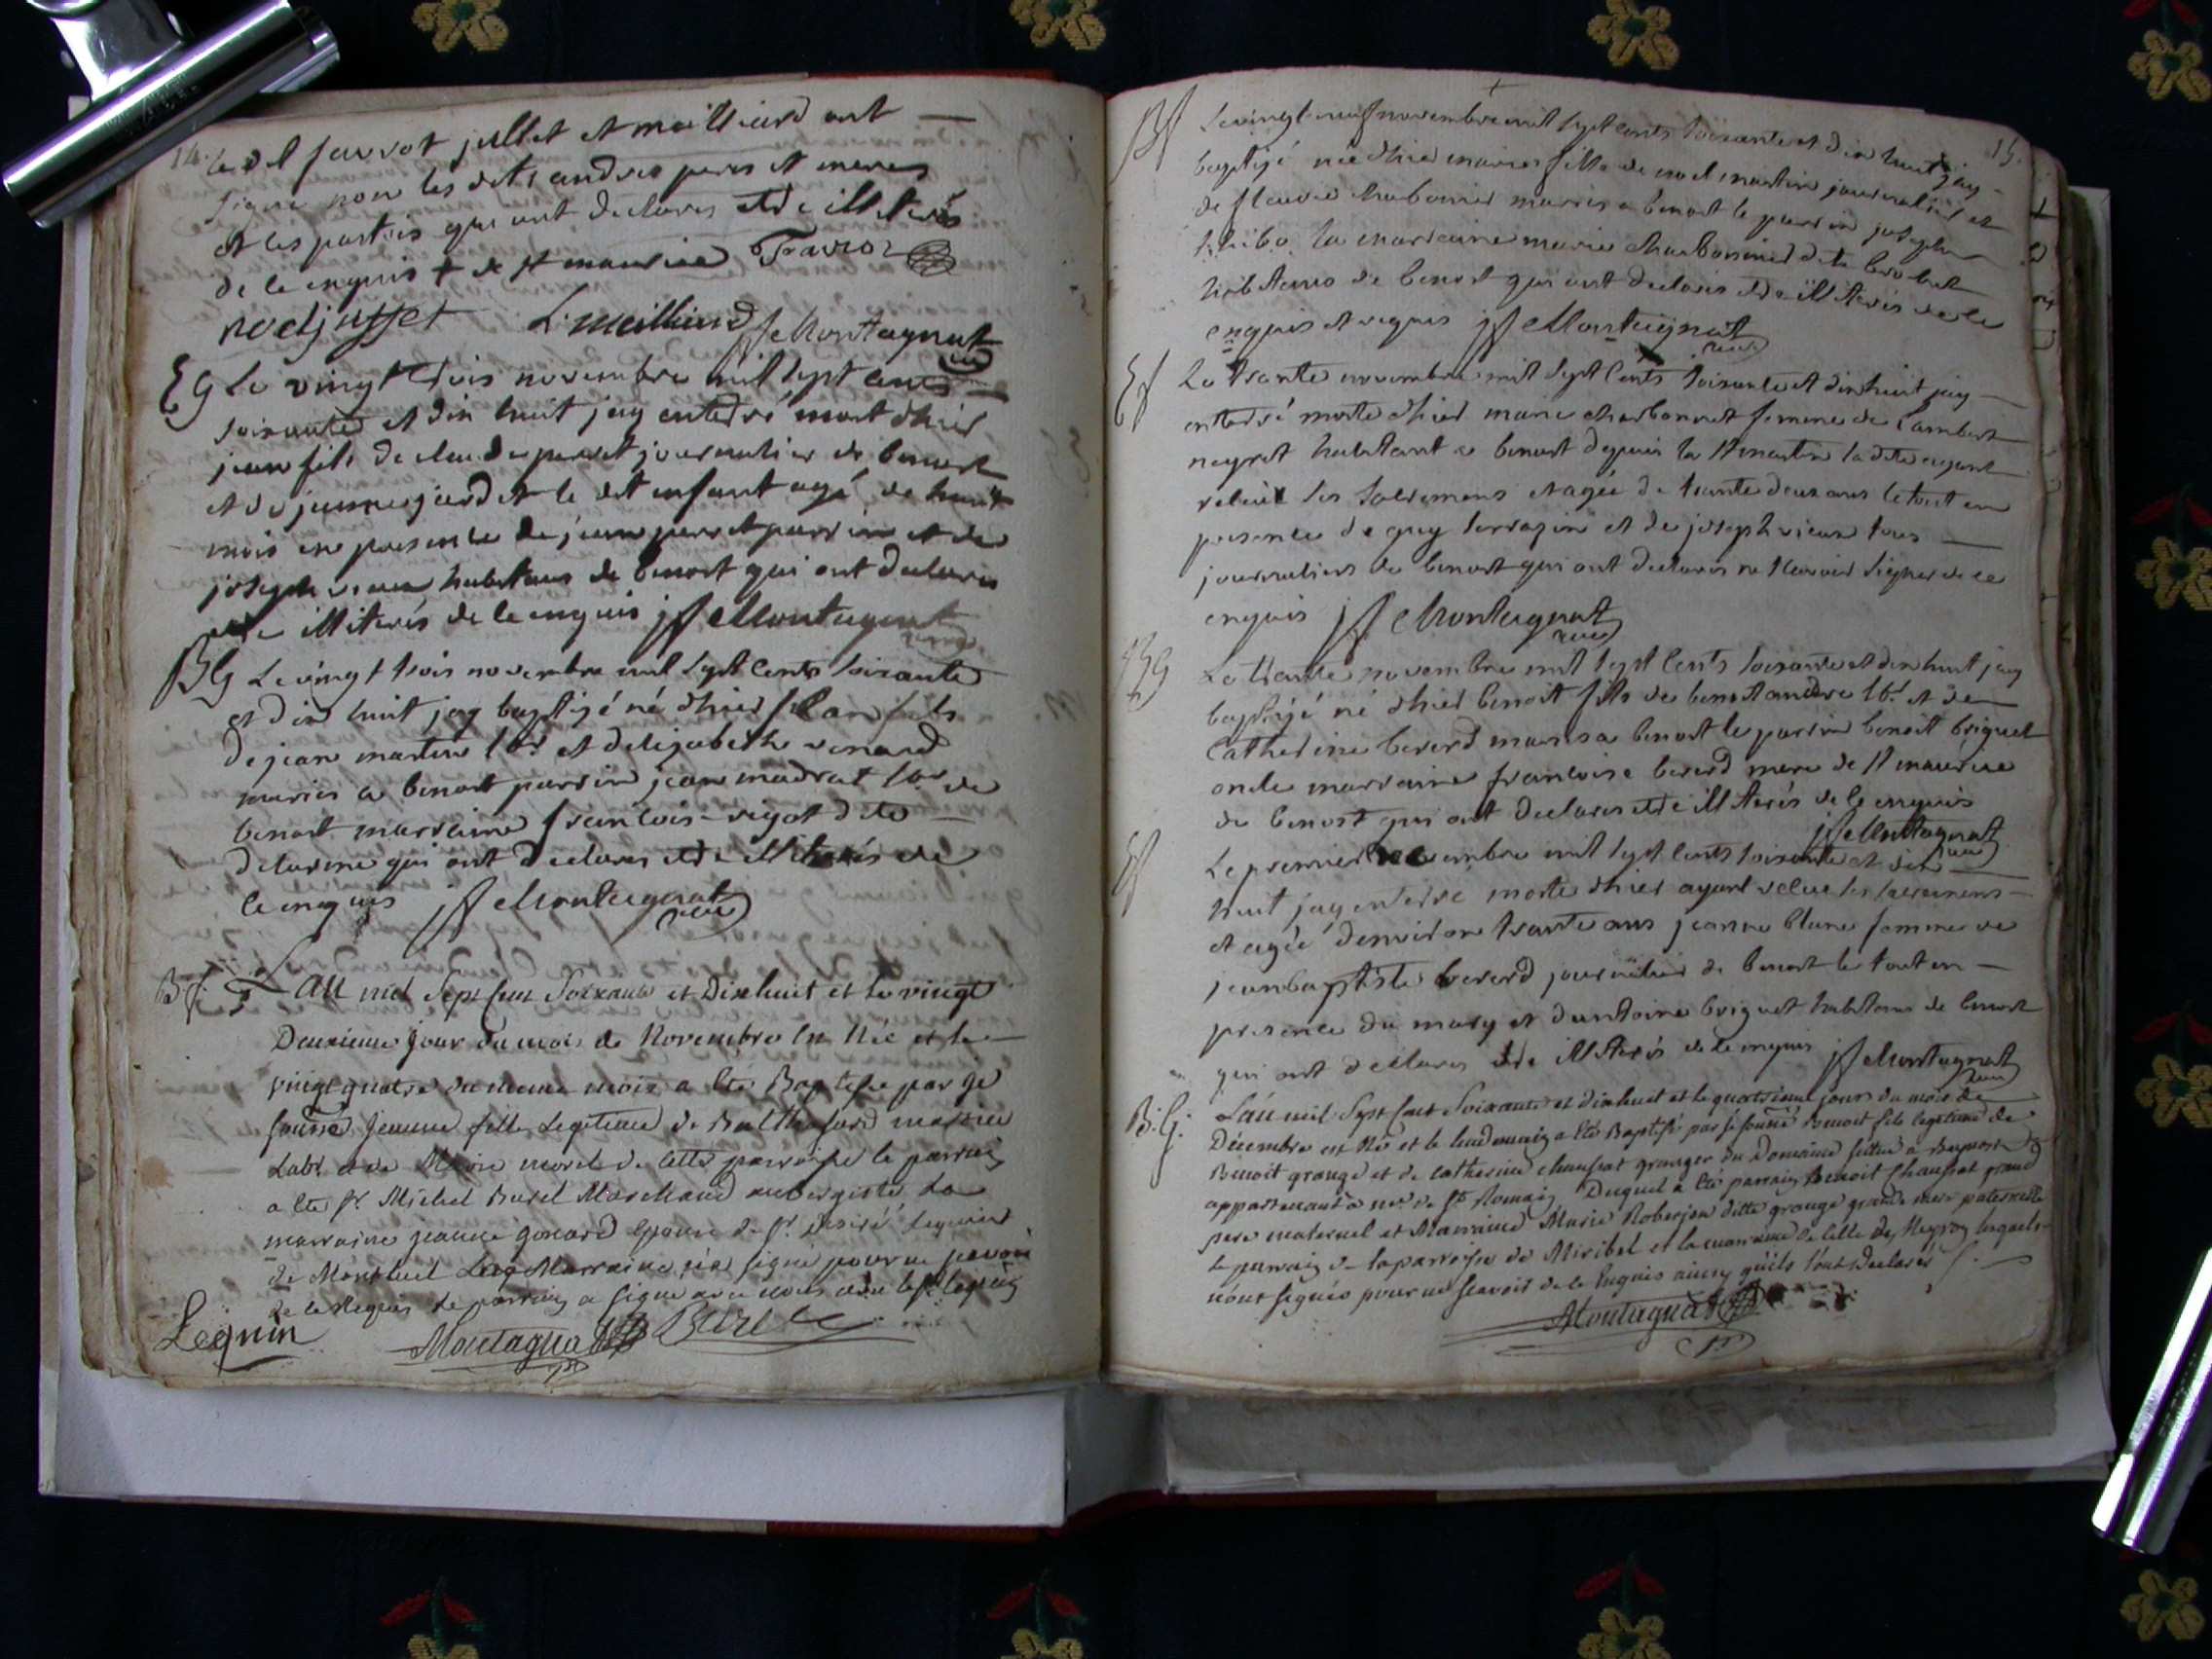 14.
le dit favrot jullet et mailliard ont
signé non les dits andres peres et meres
et les parties qui ont declarés etre illiterés
de ce enquis + de st maurice Favrot
noel juffet L. Mailliard jf e Montagnat
Eg Le vingt trois novembre mil sept cents
soixante et dix huit jay enterré mort d'hier
jean fils de claude perret journalier de benost
et de jeanne jard et le dit enfant agé de huit
mois en presence de jean perret parrin et de
joseph vieux habitans de benost qui ont declarés
etre illiterés de ce enquis jf e Montagnat
curé
BG Le vingt trois novembre mil sept cents soixante
et dix huit jay baptizé né d'hier fils
de jean martin lbr. et delizabeth renard
mariés a benost parrin jean madrat lbr de
benost marraine francoise rigot dite
qui ont declarés etre illiterés de
ce enquis jf e Montagnat
curé
B.f. L'an mil Sept Cent Soixante et Dixhuit et le vingt
Deuxieme jour du mois de Novembre Est Née et le
vingt quatre du meme mois a été Baptisée par Je
soussé Jeanne fille Legitime de Balthasard
Labr. et de Marie morel de cette parroisse le parrain
a été Sr. Michel Burel Marchand aubergiste La
marraine jeanne gonard Epouse de Sr. Desiré Lequin
de Montluel Laq Marraine n'a signé pour ne scavoir
de ce Requis le parrain a signé avec nous avec le Sr Lequin
Lequin Montagnat Burel
15.
Bf Le vingt neuf novembre mil sept cents soixante et dix huit jay
baptizé née d'hier marie fille de noel martin journalier et
de fleurie charbonnier mariés a benost le parrin joseph
la marraine marie charbonnier dite
habitans de benost qui ont declarés etre illiterés de ce
enquis et requis jf e Montagnat
curé
Ef Le trante novembre mil sept cents soixante et dix huit jay
enterré morte d'hier marie charbonnet femme de Lambert
neyret habitant a benost depuis la st martin la dite ayant
reçeu les sacremens et agée de trante deux ans le tout en
presence de guy terrasin et de joseph vieux tous
journaliers de benost qui ont declarés ne scavoir signer de ce
enquis jf e Montagnat
curé
BG Le trante novembre mil sept cents soixante et dix huit jay
baptizé né d'hier benoit fils de benoit andre lbr. et de
Catherine berard mariés a benost le parrin benoit briguet
oncle marraine francoise berard mere de st maurice
de benost qui ont declarés etre illiterés de ce enquis
jf e Montagnat
curé
Ef Le premier decembre mil sept cents soixante et dix
huit jay enterré morte d'hier ayant reçeu les sacremens
et agée d'environ trante ans jeanne blanc femme de
jean baptiste berard journalier de benost le tout en
presence du mary et dantoine briguet habitans de benost
qui ont declarés etre illiterés de ce enquis jf e Montagnat
curé
B.G. L'an mil Sept Cent Soixante et Dixhuit et le quatrieme jour du mois de
Décembre est Né et le lendemain a été Baptisé par je soussé Benoit fils legitime de
Benoit grange et de Catherine chausat granger du Domaine situé a
appartenant a mr. de St. Romain Duquel a été parrain Benoit Chausat grand
pere maternel et Marraine Marie Roberjon ditte grange grande mere paternelle
le parrain de la parroisse de Miribel et la marraine de celle de Neyron lesquels
n'ont signés pour ne scavoir de ce Enquis ainsy qu'ils l'ont Declarés
Montagnat